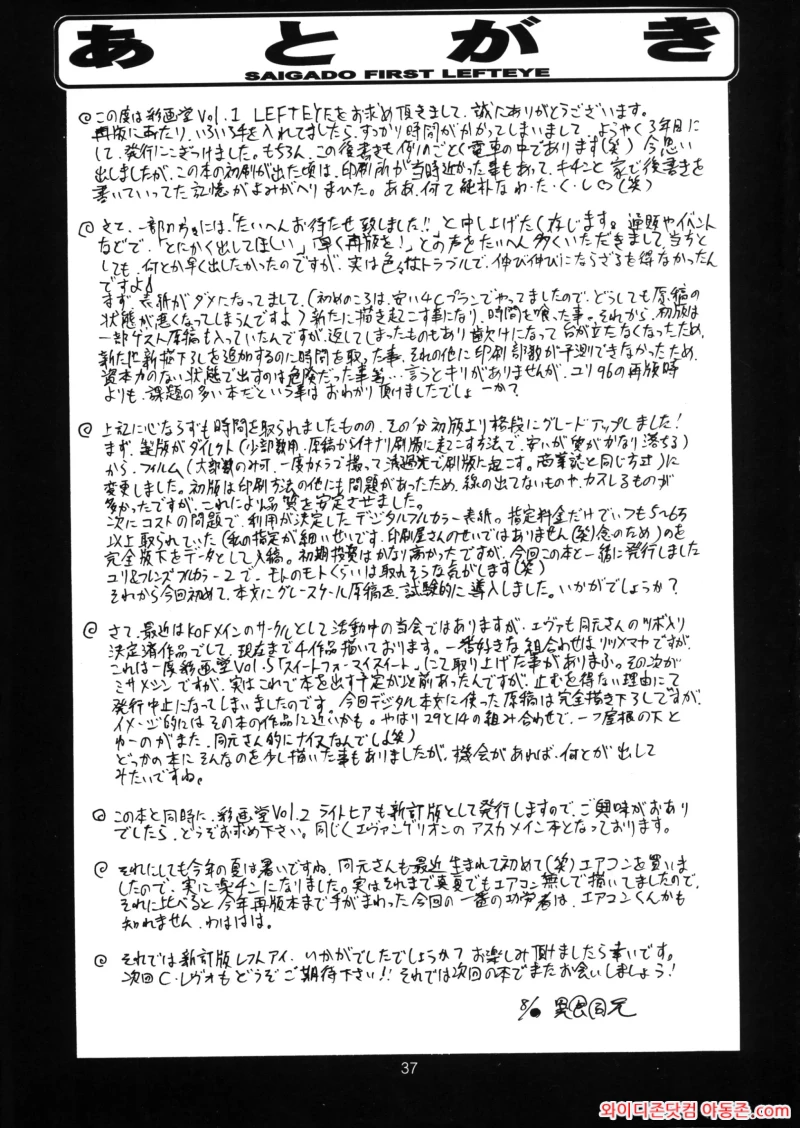 あとがき
SAIGADO FIRST LEFTEYE
@ この度は彩画堂Vol.1 LEFTEYEをお求め頂きまして、誠にありがとうございます。
再版にあたり、いろいろ手を入れてましたら、すっかり時間がかかってしまいまして、ようやく3年目に
して、発行にこぎつけました。もちろん、この後書きも例のごとく電車の中であります(笑) 今思い
出しましたが、この本の初刷が出た頃は、印刷所が当時近かった事もあって、キチンと家で後書きを
書いていってた記憶がよみがへりまひた。ああ、何て純朴なわ・た・く・し♡(笑)
@ さて、一部の方々には、「たいへんお待たせ致しました!!」と申し上げたく存じます。通販やイベント
などで、「とにかく出してほしい」「早く再版を!」との声をたいへん多くいただきまして、当方と
しても、何とか早く出したかったのですが、実は色々なトラブルで、伸び伸びにならざるを得なかったん
ですよ
まず、表紙がダメになってまして、(初めのころは、安い4Cプランでやってましたので、どうしても原稿の
状態が悪くなってしまうんですよ)新たに描き起こす事になり、時間を喰った事。それから、初版は
一部ゲスト原稿も入っていたんですが、返してしまったものもあり歯欠けになって台が立たなくなったため、
新たに新描下しを追加するのに時間を取った事、それの他に印刷部数が予測できなかったため、
資本力のない状態で出すのは危険だった事等…言うとキリがありませんが、ユリ96の再版時
よりも、課題の多い本だという事はおわかり頂けましたでしょーか?
@ 上記に心ならずも時間を取られましたものの、その分初版より格段にグレードアップしました!
まず、製版がダイレクト(少部数用、原稿からイキナリ刷版に起こす方法で、安いが質がかなり落ちる)
から、フィルム(大部数のみ可、一度カメラで撮って、刷版に起こす。商業誌と同じ方式)に
変更しました。初版は印刷方法の他にも問題があったため、線の出てないものや、カスレるものが
多かったですが、これにより品質を安定させました。
次にコストの問題で、利用が決定したデジタルフルカラー表紙。指定料金だけでいつも5~6万
以上取られていた(私の指定が細いせいです、印刷屋さんのせいではありません(笑)念のため)のを
完全版下をデータとして入稿。初期投資はかなり高かったですが、今回この本と一緒に発行しました
ユリ&フレンズフルカラー2で、モトのモトくらいは取れそうな気がします(笑)
それから今回初めて、本文にグレースケール原稿を、試験的に導入しました。いかがでしょうか?
@ さて、最近はKOFメインのサークルとして活動中の当会ではありますが、エヴァも同元さんのツボ入り
決定済作品でして、現在まで4作品描いております。一番好きな組合わせはリツ×マヤですが、
これは一度彩画堂Vol.5「スイートフォーマイスイート」にて取り上げた事がありまふ。その次が
ミサ×シンですが、実はこれで本を出す予定が以前あったんですが、止むを得ない理由にて
発行中止になってしまいましたのです。今回デジタル本文に使った原稿は完全描き下ろしですが、
イメージ的にはその本の作品に近いかも。やはり29と14の組み合わせで、一つ屋根の下と
ゆーのがまた、同元さん的にナイスなんでし(笑)
どっかの本にそんなのを少し描いた事もありましたが、機会があれば、何とか出して
みたいですね。
@ この本と同時に、彩画堂Vol.2 ライトヒアも新訂版として発行しますので、ご興味がおあり
でしたら、どうぞお求め下さい。同じくエヴァンゲリオンのアスカメイン本となっております。
@ それにしても今年の夏は暑いですね、同元さんも最近生まれて初めて(笑)エアコンを買いま
したので、実に楽チンになりました。実はそれまで真夏でもエアコン無しで描いてましたので、
それに比べると今年再版本まで手がまわった今回の一番の功労者は、エアコンくんかも
知れません、わははは。
@ それでは新訂版レフトアイ、いかがでしたでしょうか? お楽しみ頂けましたら幸いです。
次回C・レヴォもどうぞご期待下さい!! それでは次回の本でまたお会いしましょう!
37
와이디존닷컴 야동존.com